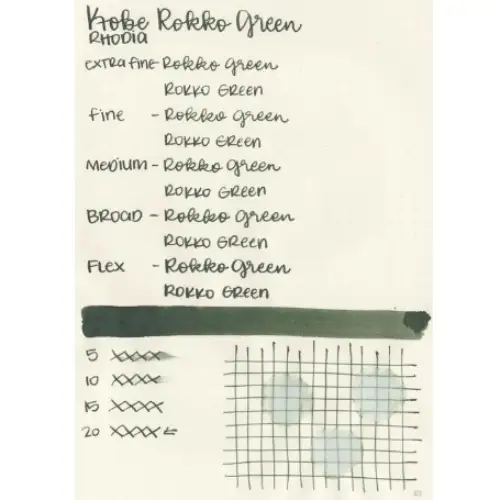 Kobe Rokko Green
RHODIA
EXTRA FINE - Rokko Green
ROKKO GREEN
FINE - Rokko Green
ROKKO GREEN
MEDIUM - Rokko Green
ROKKO GREEN
BROAD - Rokko Green
ROKKO GREEN
FLEX - Rokko Green
ROKKO GREEN
5 XXXX
10 XXXX
15 XXXX
20 XXXX ←